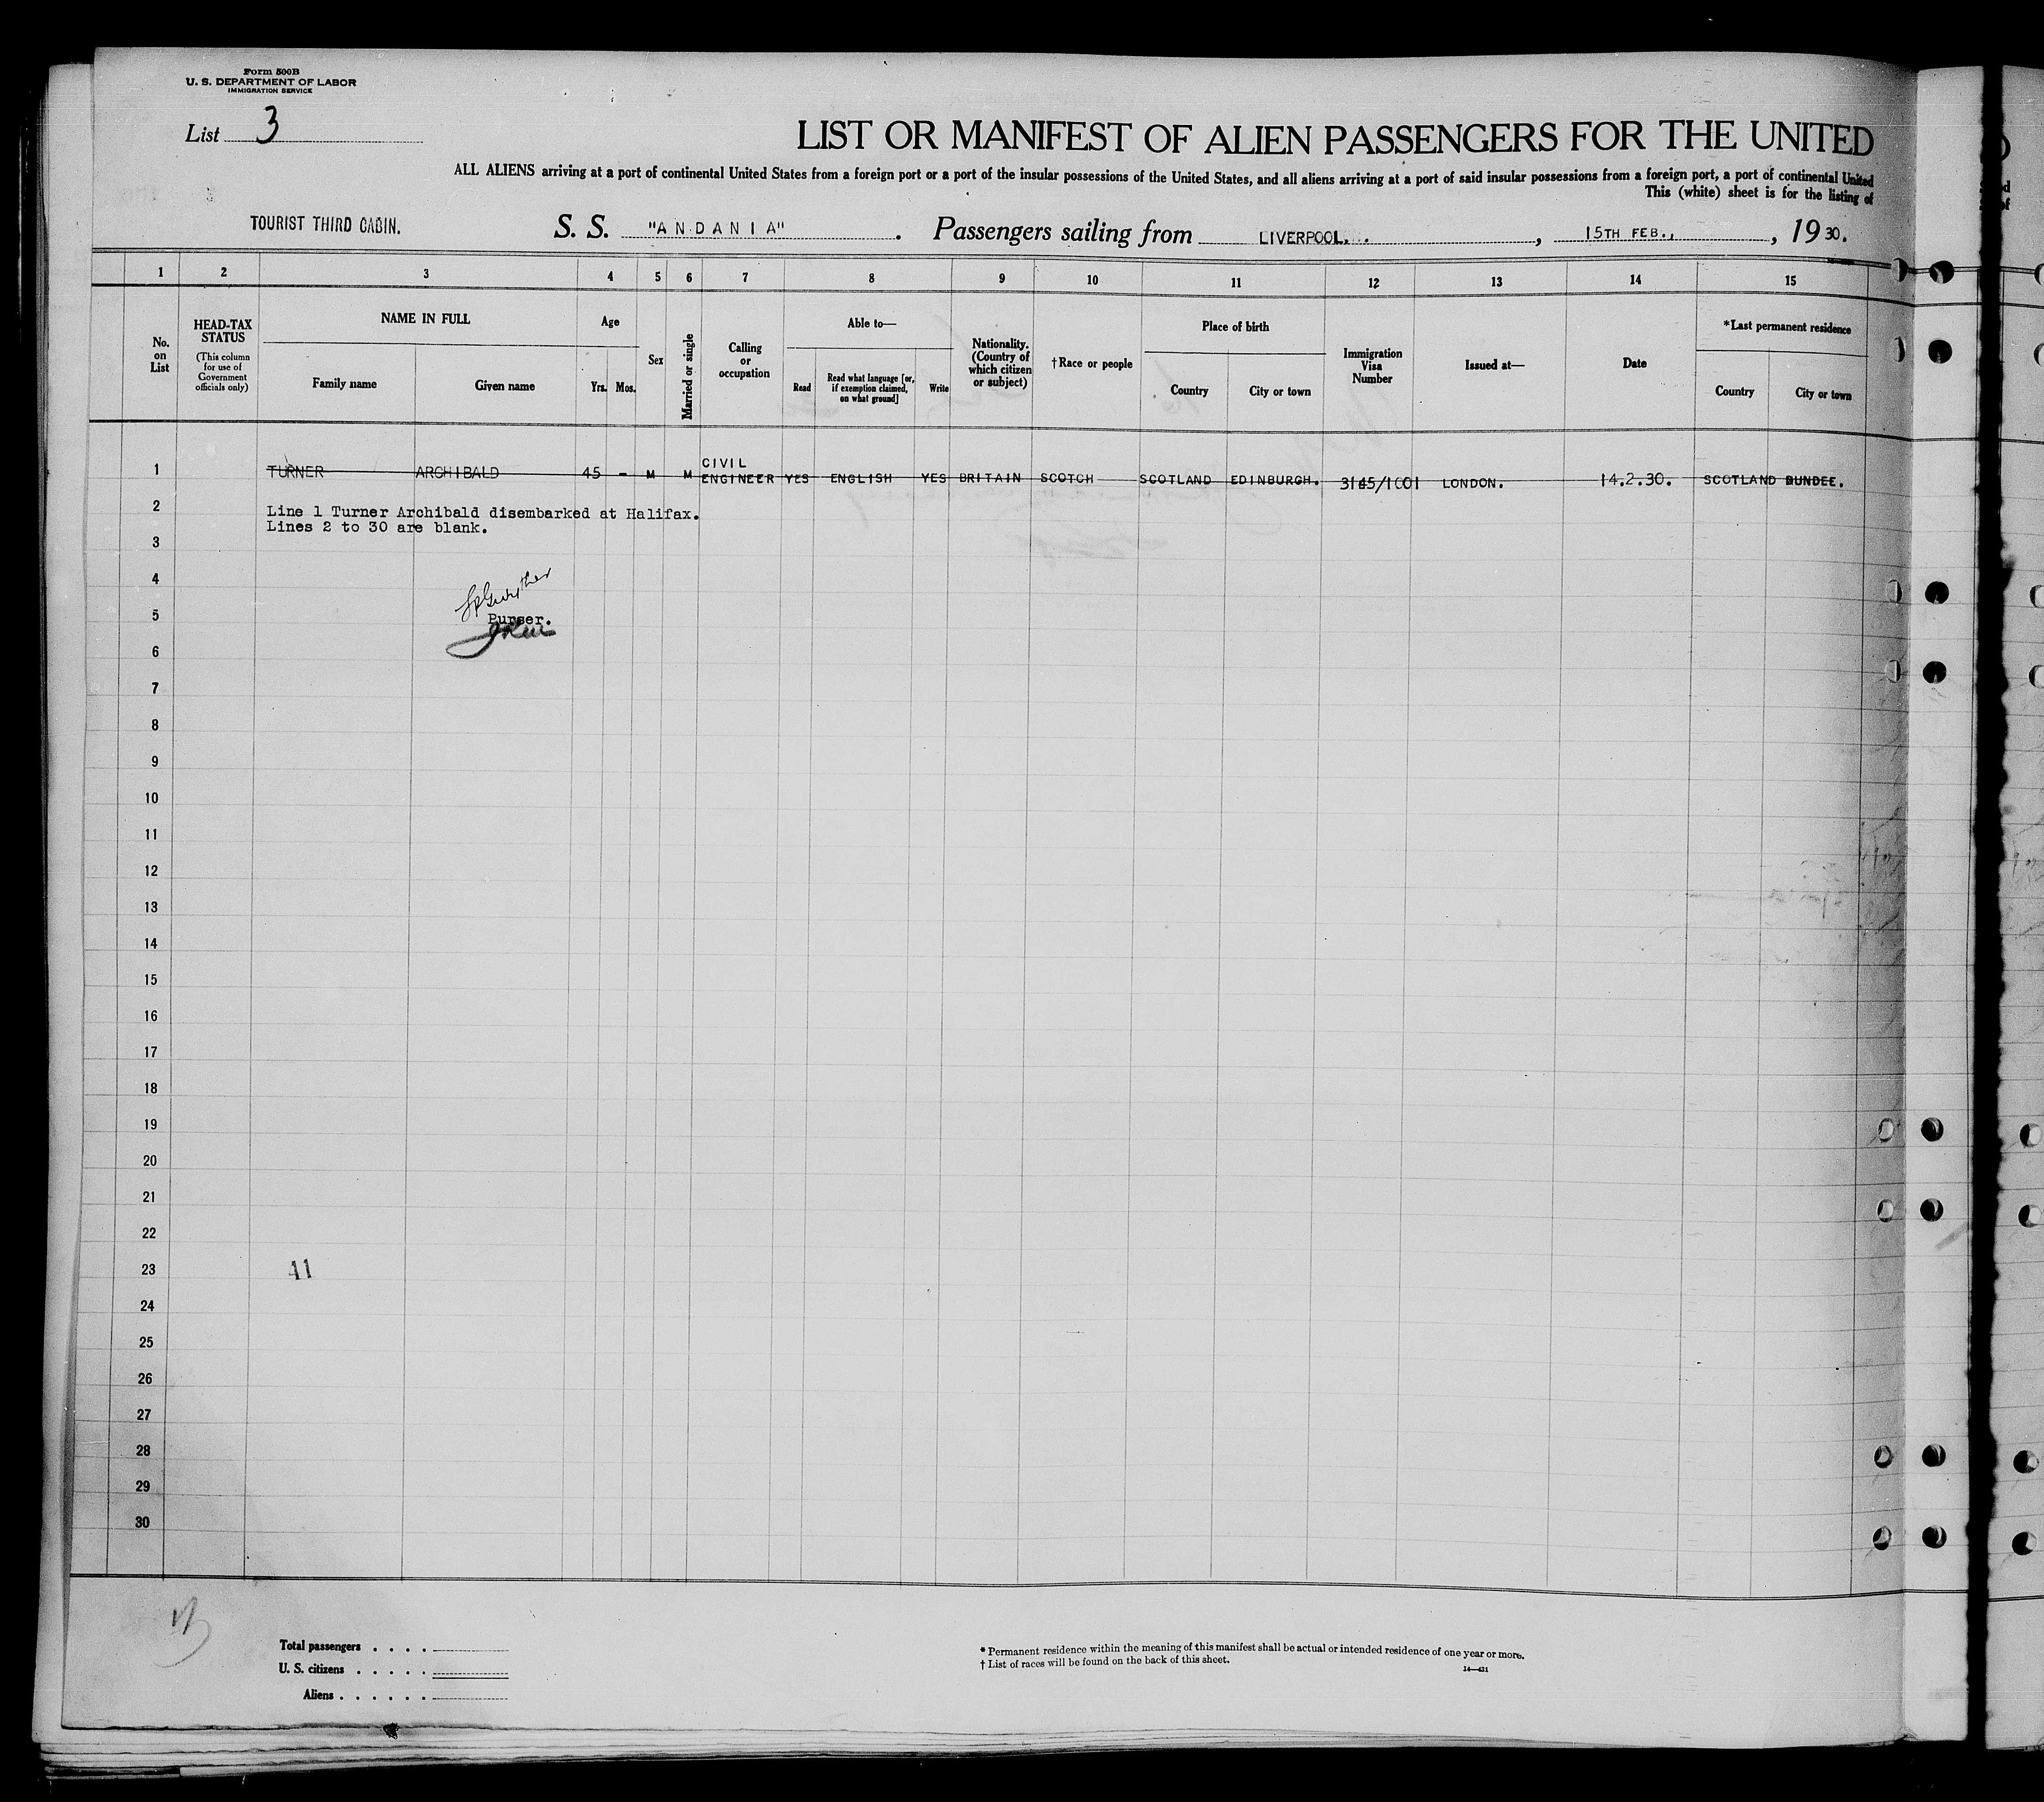 Form 500B
U. S. DEPARTMENT OF LABOR
IMMIGRATION SERVICE
List 3
LIST OR MANIFEST OF ALIEN PASSENGERS FOR THE UNITED
ALL ALIENS arriving at a port of continental United States from a foreign port or a port of the insular possessions of the United States, and all aliens arriving at a port of said insular possessions from a foreign port, a port of continental United
This (white) sheet is for the listing of
TOURIST THIRD CABIN. S. S. "ANDANIA". Passengers sailing from LIVERPOOL., 15TH FEB., , 1930.
1 2 3 4 5 6 7 8 9 10 11 12 13 14 15
No. on List
HEAD-TAX STATUS
(This column for use of Government officials only)
NAME IN FULL
Family name
Given name
Age
Yrs. Mos.
Sex
Married or single
Calling or occupation
Able to—
Read
Read what language [or, if exemption claimed, on what ground]
Write
Nationality. (Country of which citizen or subject)
†Race or people
Place of birth
Country
City or town
Immigration Visa Number
Issued at—
Date
*Last permanent residence
Country
City or town
1 TURNER ARCHIBALD 45 - M M CIVIL ENGINEER YES ENGLISH YES BRITAIN SCOTCH SCOTLAND EDINBURGH. 3145/1001 LONDON. 14.2.30. SCOTLAND DUNDEE.
2 Line 1 Turner Archibald disembarked at Halifax.
Lines 2 to 30 are blank.
3
4
5
Purser.
6
7
8
9
10
11
12
13
14
15
16
17
18
19
20
21
22
23
41
24
25
26
27
28
29
30
Total passengers . . . .
U. S. citizens . . . . .
Aliens . . . . . .
* Permanent residence within the meaning of this manifest shall be actual or intended residence of one year or more.
† List of races will be found on the back of this sheet.
14—431